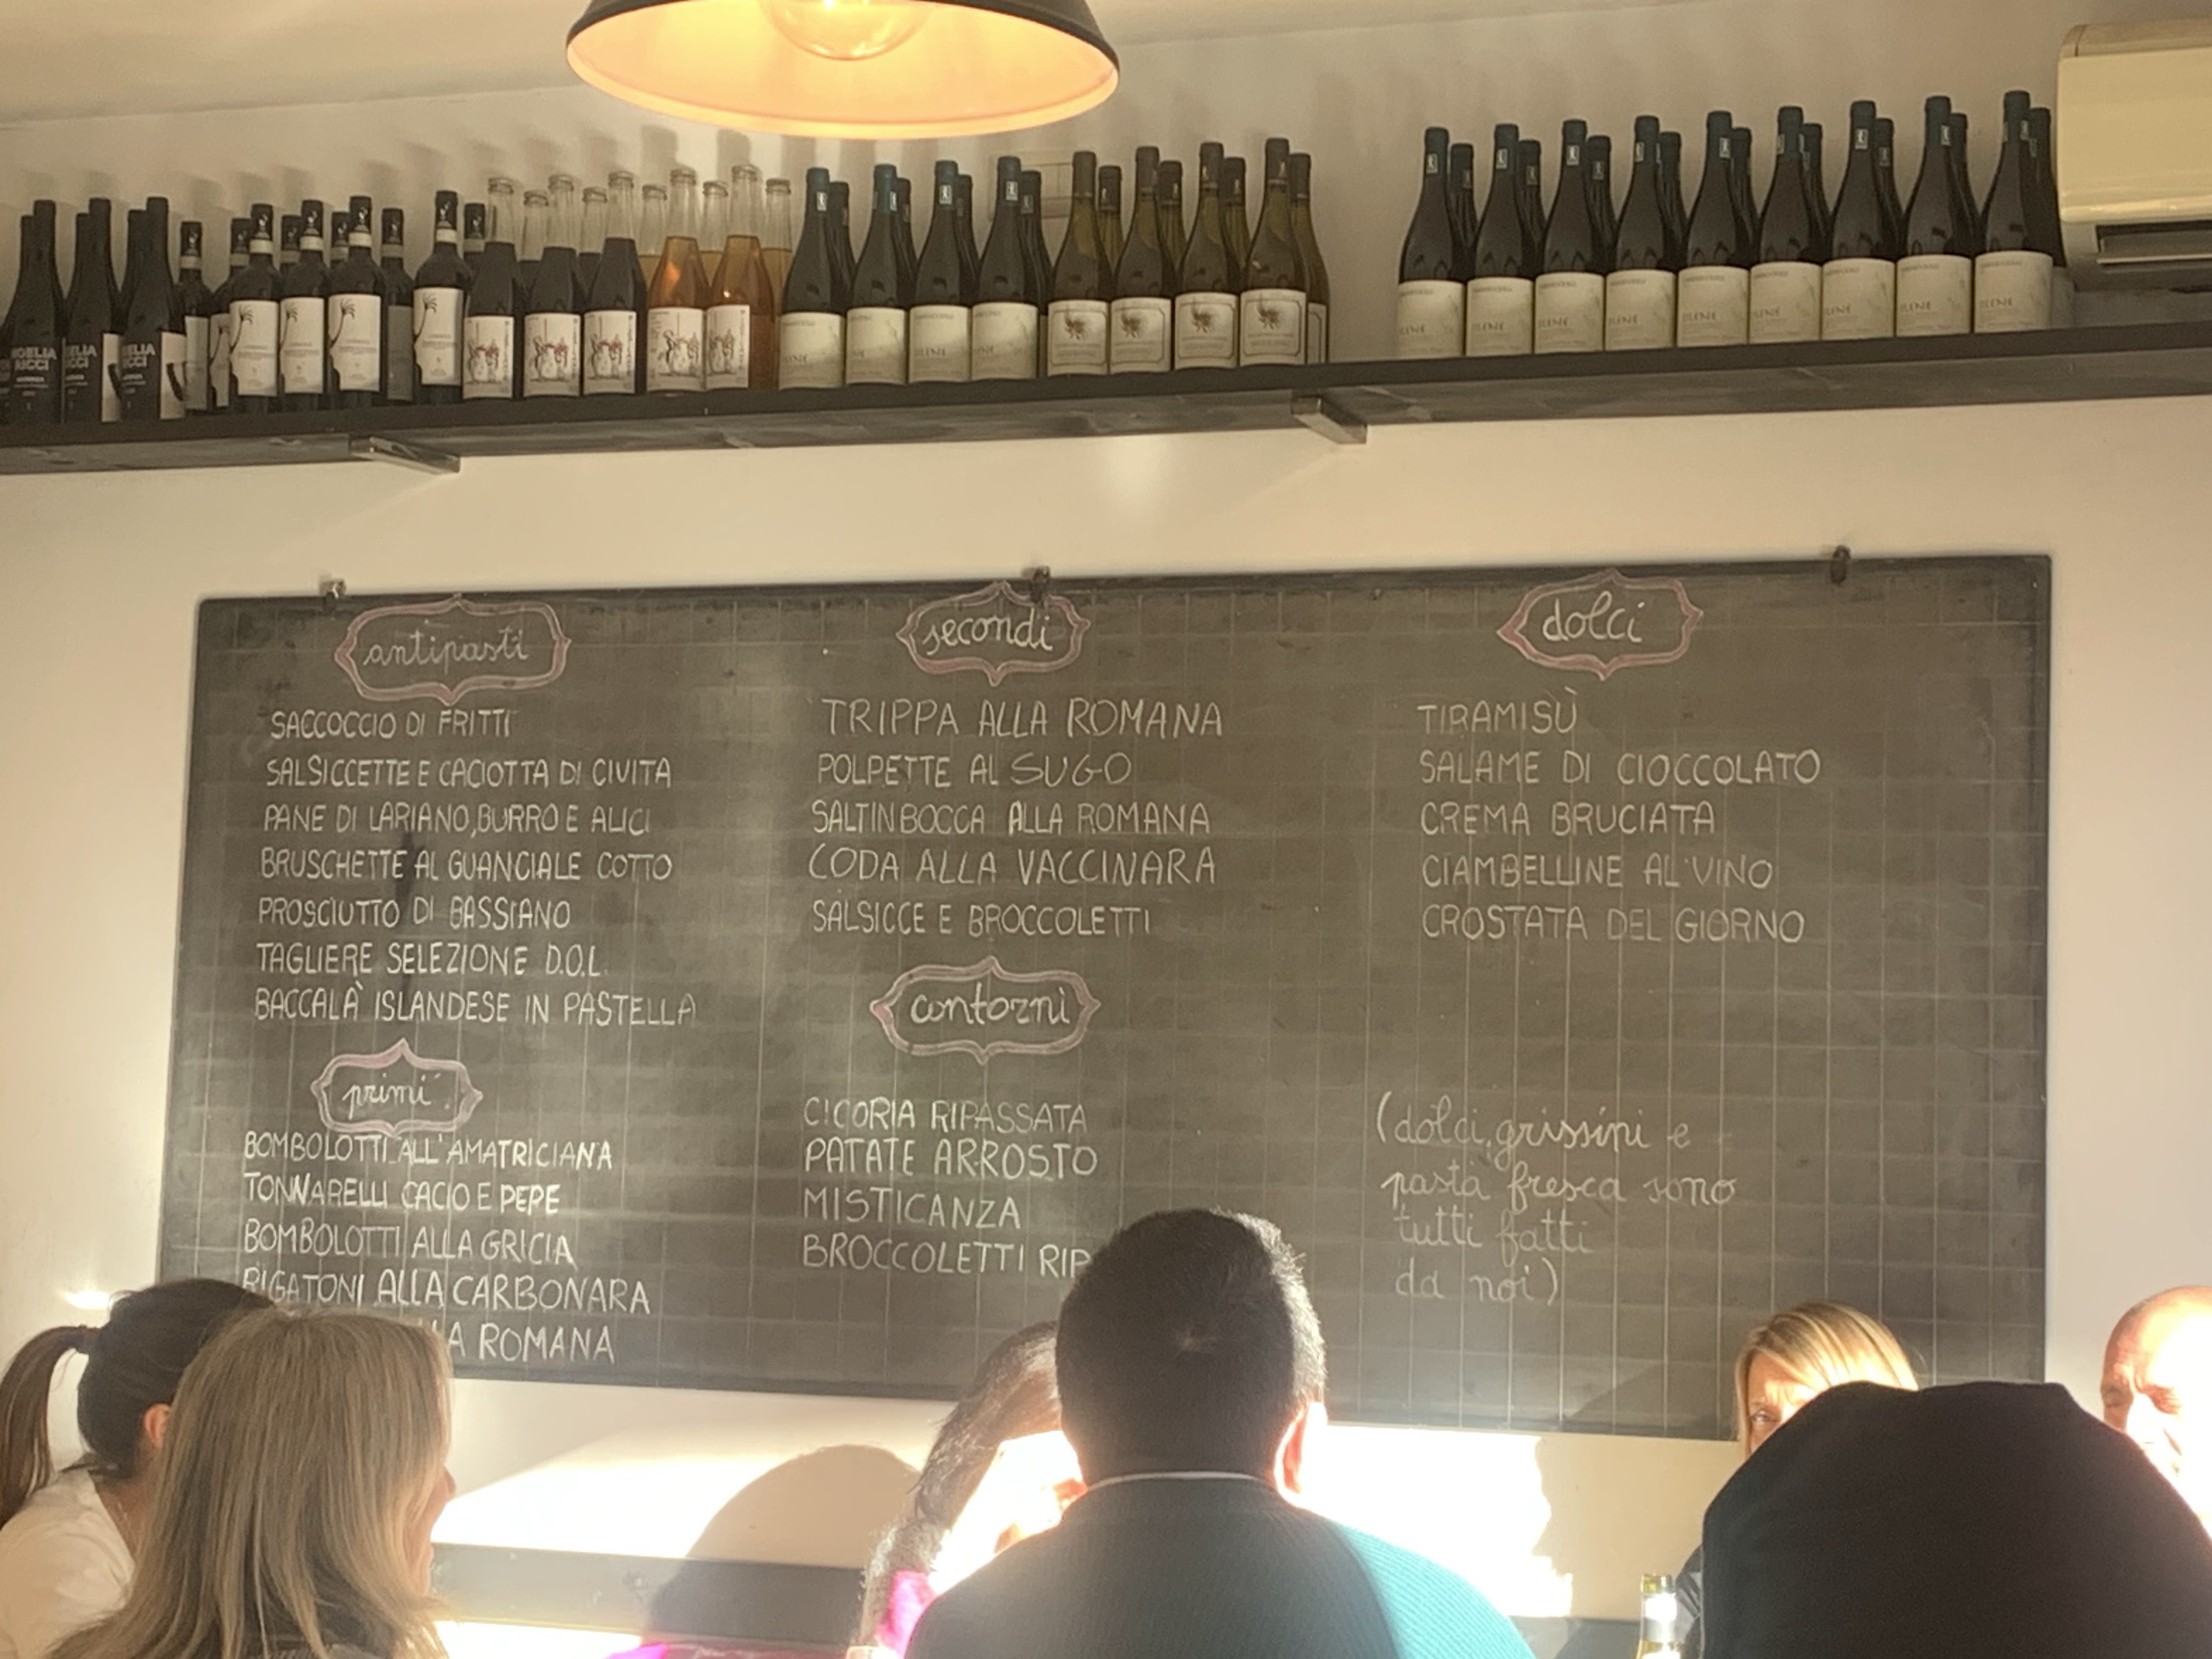 NOELIA
RICCI
antipasti
SACCOCCIO DI FRITTI
SALSICCETTE E CACIOTTA DI CIVITA
PANE DI LARIANO, BURRO E ALICI
BRUSCHETTE AL GUANCIALE COTTO
PROSCIUTTO DI BASSIANO
TAGLIERE SELEZIONE D.O.L.
BACCALÀ ISLANDESE IN PASTELLA
primi
BOMBOLOTTI ALL'AMATRICIANA
TONNARELLI CACIO E PEPE
BOMBOLOTTI ALLA GRICIA
RIGATONI ALLA CARBONARA
ROMANA
secondi
TRIPPA ALLA ROMANA
POLPETTE AL SUGO
SALTINBOCCA ALLA ROMANA
CODA ALLA VACCINARA
SALSICCE E BROCCOLETTI
contorni
CICORIA RIPASSATA
PATATE ARROSTO
MISTICANZA
BROCCOLETTI RIP
dolci
TIRAMISÙ
SALAME DI CIOCCOLATO
CREMA BRUCIATA
CIAMBELLINE AL VINO
CROSTATA DEL GIORNO
(dolci, grissini e
pasta fresca sono
tutti fatti
da noi)